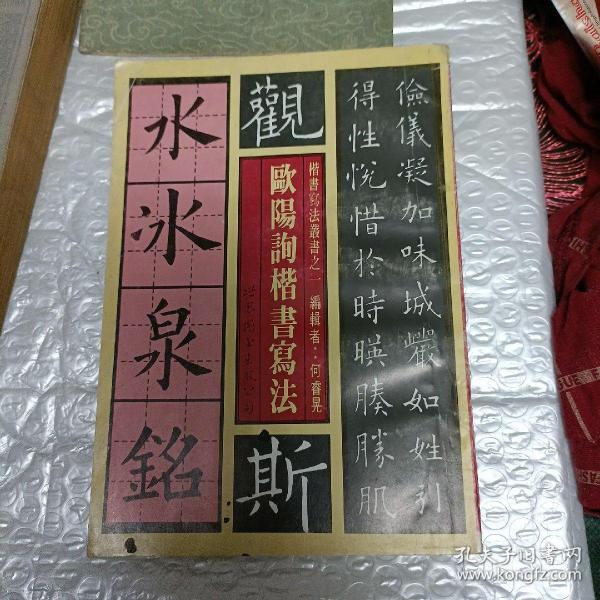 觀
斯
楷書寫法叢書之一 編輯者：何睿晃
歐陽詢楷書寫法
水
冰
泉
銘
儉儀凝加味城巖如姓引
得性悅惜於時暎腠勝肌
孔夫子旧书网
www.kongfz.com